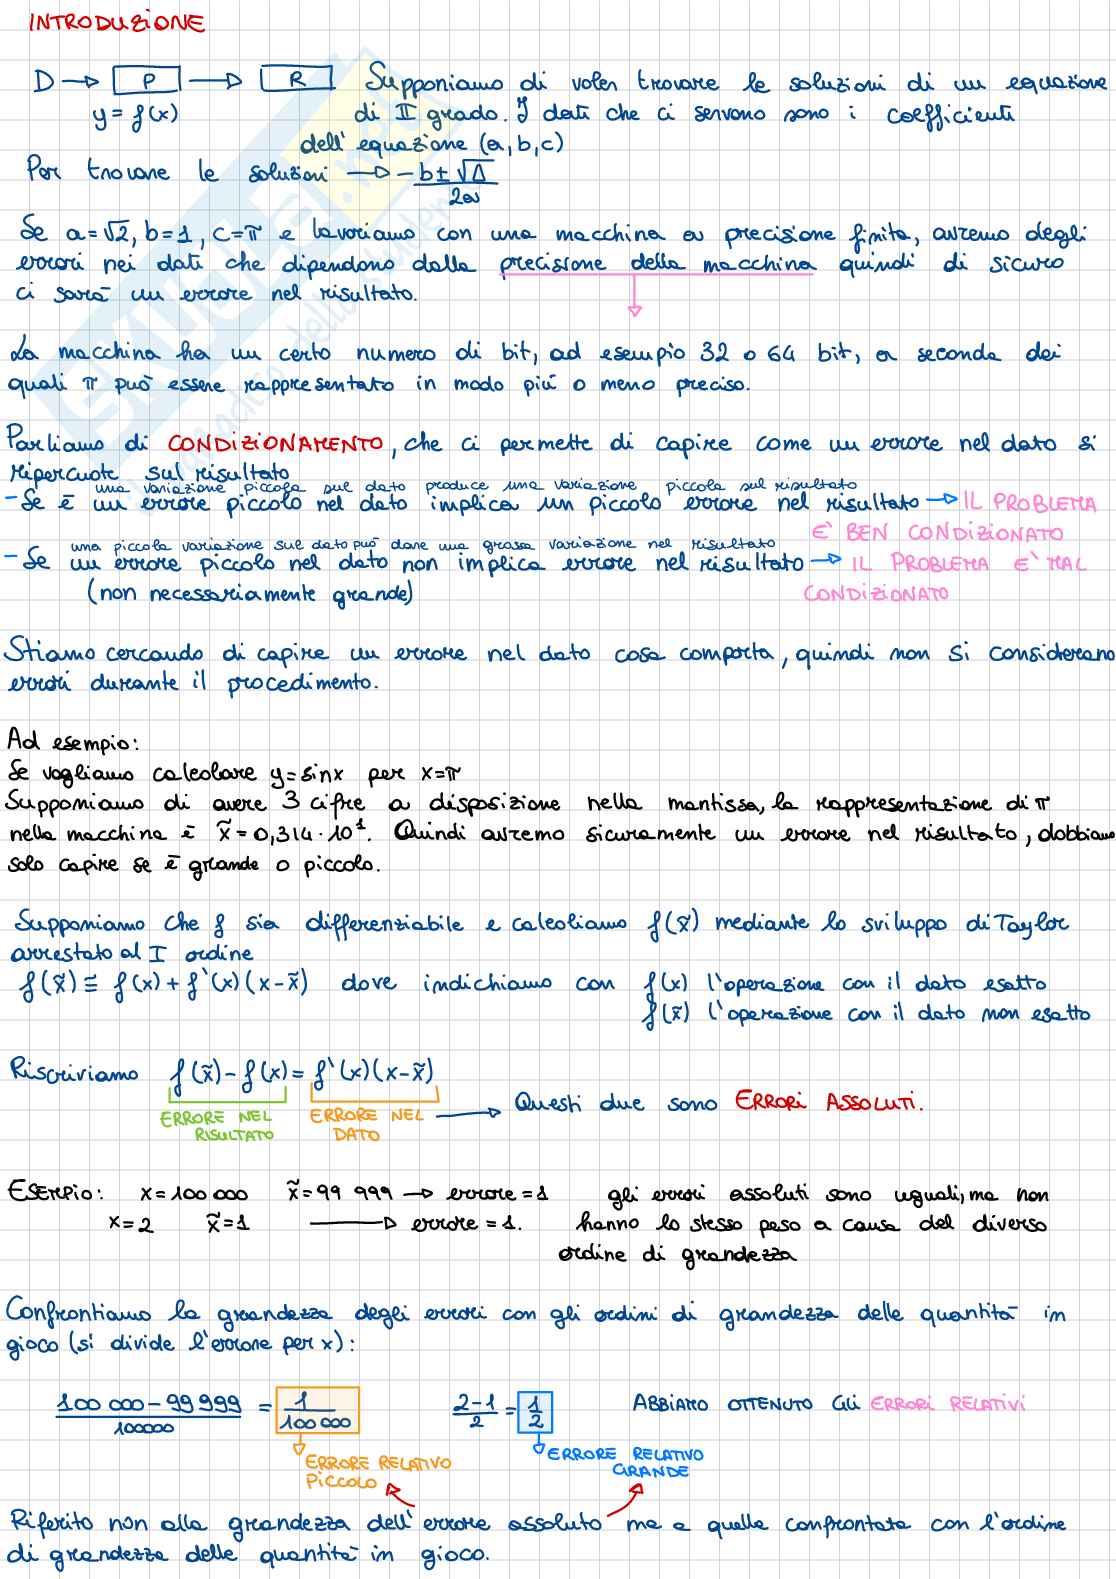 INTRODUZIONE
D → P → R Supponiamo di voler trovare le soluzioni di un equazione
y = f(x) di II grado. I dati che ci servono sono i coefficienti
dell'equazione (a, b, c)
Per trovare le soluzioni → -b±√Δ
2a
Se a=√2, b=1, c=π e lavoriamo con una macchina a precisione finita, avremo degli
errori nei dati che dipendono dalla precisione della macchina quindi di sicuro
ci sarà un errore nel risultato.
La macchina ha un certo numero di bit, ad esempio 32 o 64 bit, a seconda dei
quali π può essere rappresentato in modo più o meno preciso.
Parliamo di CONDIZIONAMENTO, che ci permette di capire come un errore nel dato si
ripercuote sul risultato
una variazione piccola sul dato produce una variazione piccola sul risultato
- Se è un errore piccolo nel dato implica un piccolo errore nel risultato → IL PROBLEMA
E' BEN CONDIZIONATO
una piccola variazione sul dato può dare una grossa variazione nel risultato
- Se un errore piccolo nel dato non implica errore nel risultato → IL PROBLEMA E' MAL
(non necessariamente grande) CONDIZIONATO
Stiamo cercando di capire un errore nel dato cosa comporta, quindi non si considerano
errori durante il procedimento.
Ad esempio:
Se vogliamo calcolare y=sinx per x=π
Supponiamo di avere 3 cifre a disposizione nella mantissa, la rappresentazione di π
nella macchina è x̃=0,314·10¹. Quindi avremo sicuramente un errore nel risultato, dobbiamo
solo capire se è grande o piccolo.
Supponiamo che f sia differenziabile e calcoliamo f(x̃) mediante lo sviluppo di Taylor
arrestato al I ordine
f(x̃) ≅ f(x) + f'(x)(x-x̃) dove indichiamo con f(x) l'operazione con il dato esatto
f(x̃) l'operazione con il dato non esatto
Riscriviamo f(x̃)-f(x) = f'(x)(x-x̃)
ERRORE NEL RISULTATO ERRORE NEL DATO → Questi due sono ERRORI ASSOLUTI.
ESEMPIO: x=100 000 x̃=99 999 → errore=1 gli errori assoluti sono uguali, ma non
x=2 x̃=1 → errore=1. hanno lo stesso peso a causa del diverso
ordine di grandezza
Confrontiamo la grandezza degli errori con gli ordini di grandezza delle quantità in
gioco (si divide l'errore per x):
100 000-99 999 = 1 2-1 = 1 ABBIAMO OTTENUTO GLI ERRORI RELATIVI
100000 100 000 2 2
ERRORE RELATIVO PICCOLO ERRORE RELATIVO GRANDE
Riferito non alla grandezza dell'errore assoluto ma a quella confrontata con l'ordine
di grandezza delle quantità in gioco.